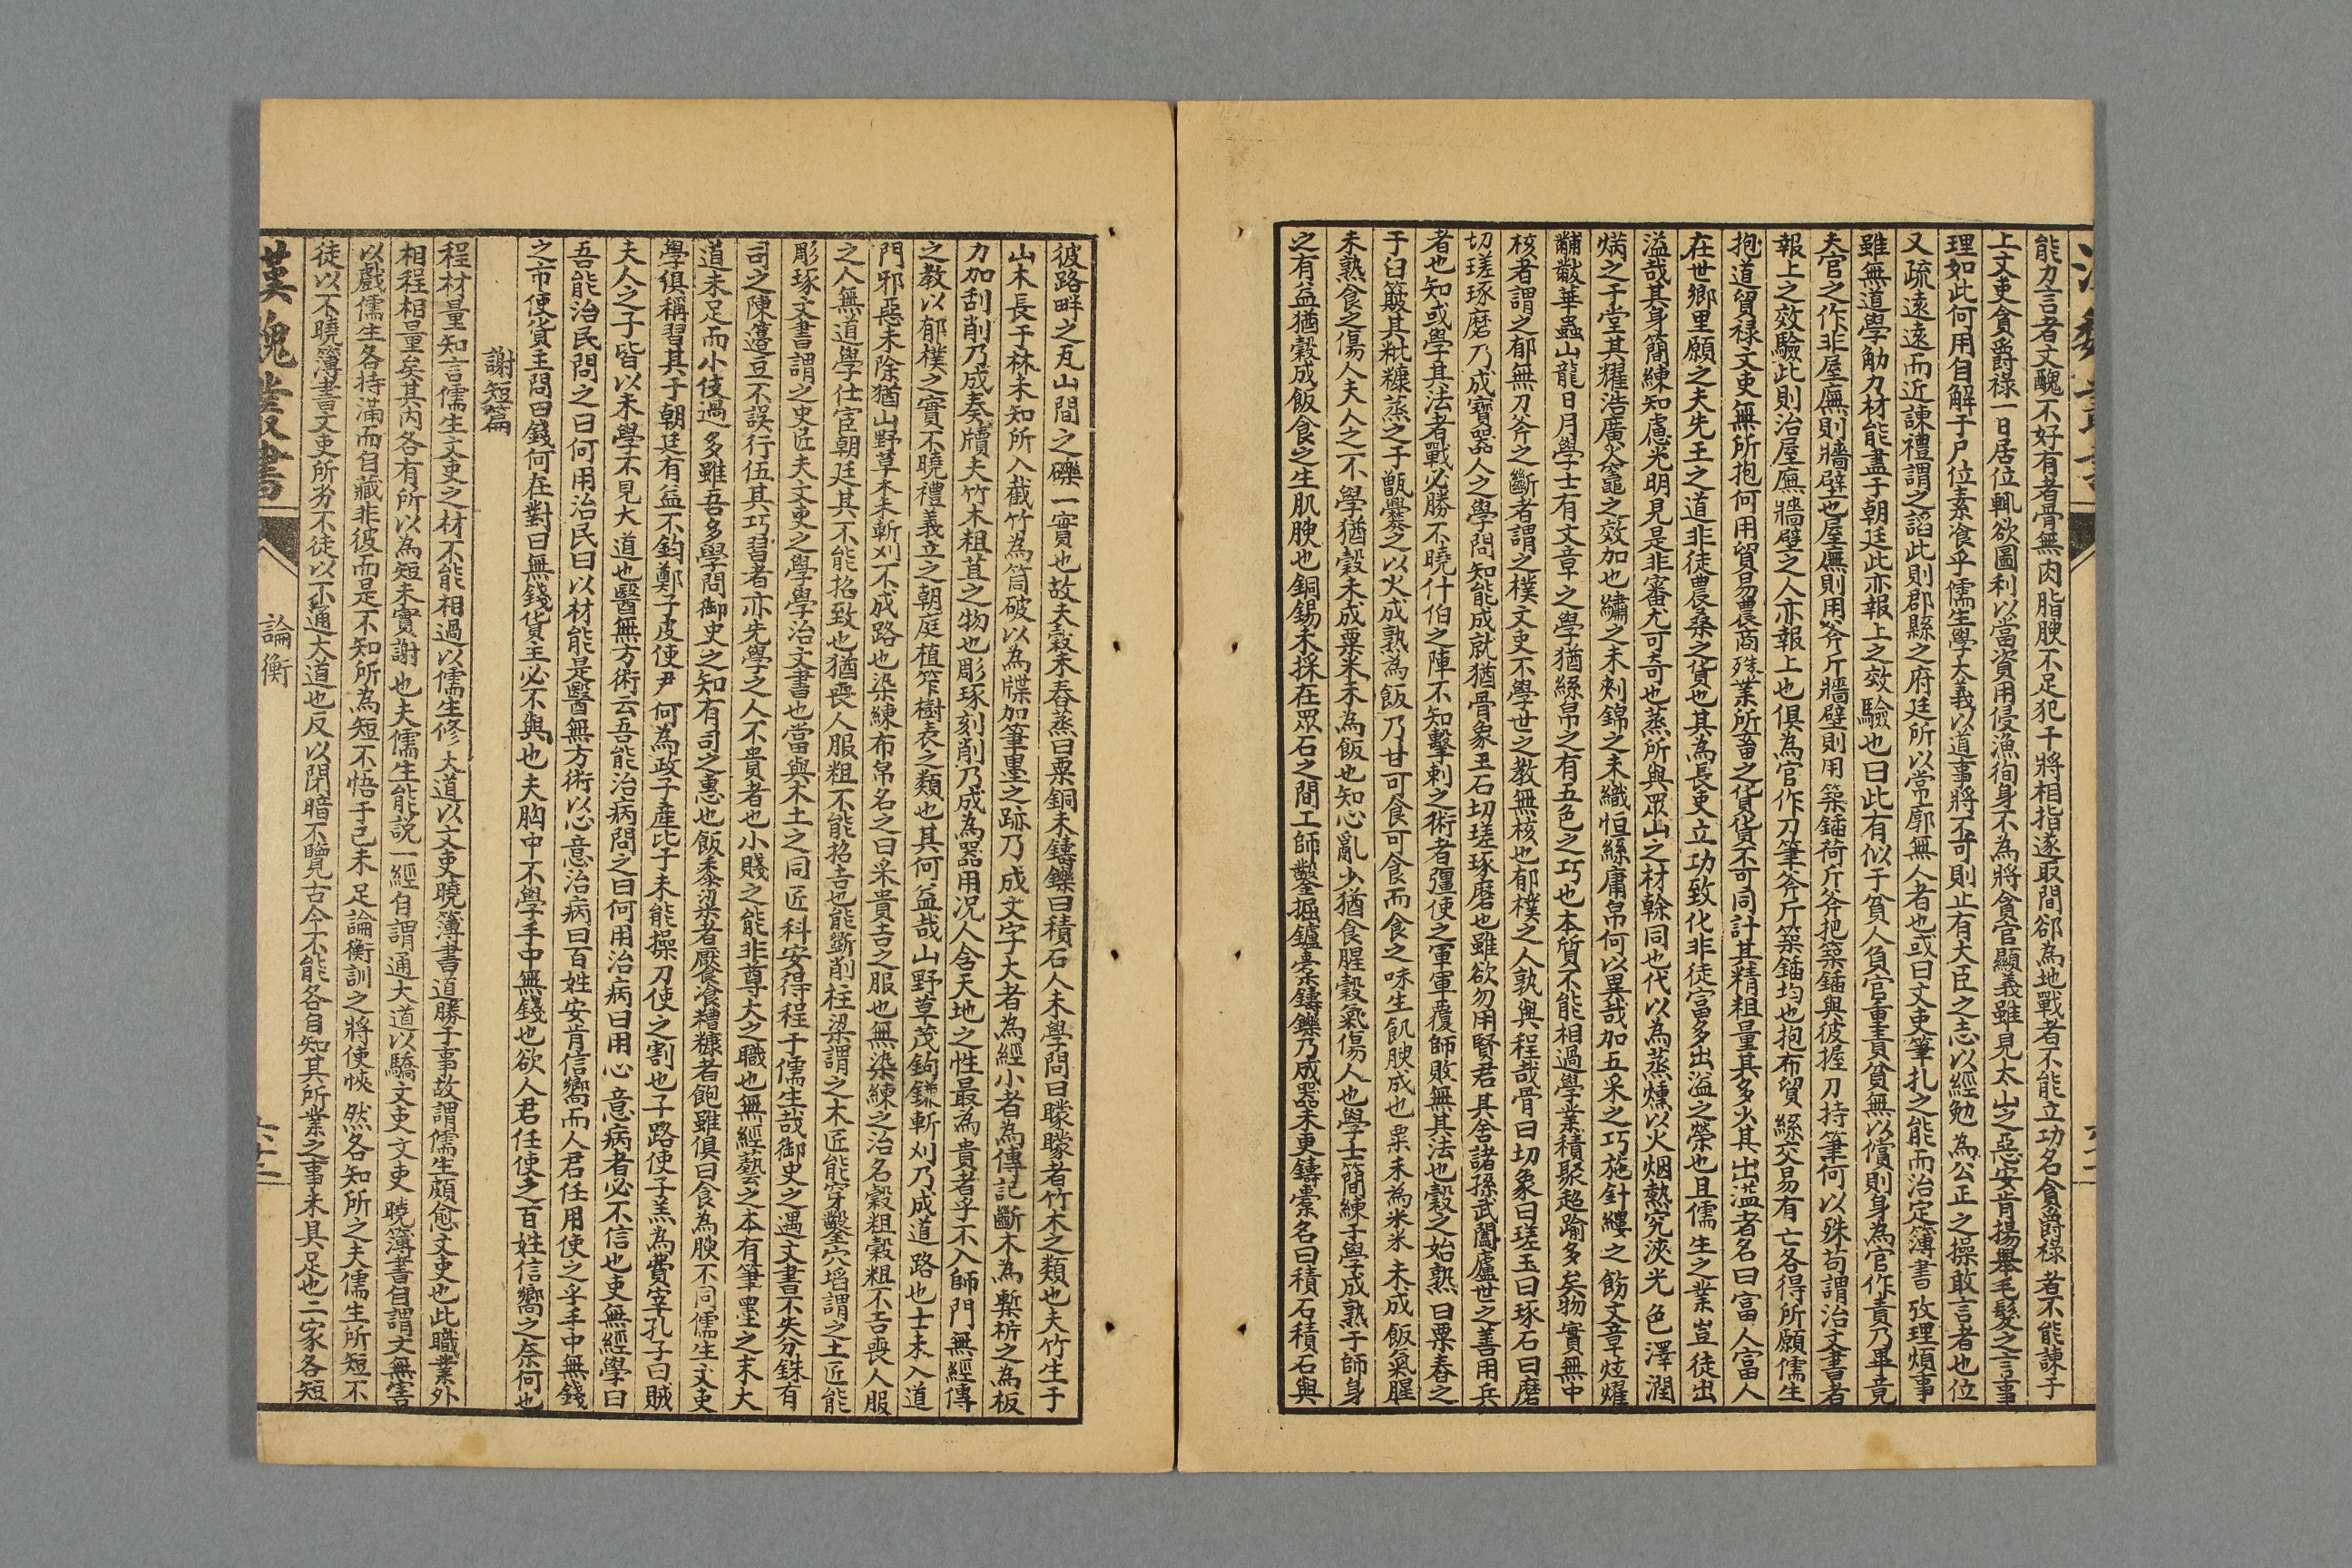 能力言者文醜不好有者骨無肉脂腴不足犯干將相指遂取間郤為地戰者不能立功名貪爵祿者不能諫于
上文吏貪爵祿一日居位輒欲圖利以當資用侵漁徇身不為將貪官顯義雖見太山之惡安肯揚舉毛髮之言事
理如此何用自解于尸位素飡乎儒生學大義以道事將不可則止有大臣之志以經勉為公正之操敢言者也位
又疏遠遠而近諫禮謂之諂此則郡縣之府廷所以常廓無人者也或曰文吏筆扎之能而治定簿書攷理煩事
雖無道學觔力材能盡于朝廷此亦報上之效驗也曰此有似于貧人負官重責貧無以償則身為官作責乃畢竟
夫官之作非屋廡則牆壁也屋廡則用斧斤牆壁則用築鍤荷斤斧把築鍤與彼握刀持筆何以殊苟謂治文書者
報上之效驗此則治屋廡牆壁之人亦報上也俱為官作刀筆斧斤築鍤均也抱布貿絲交易有亡各得所願儒生
抱道貿祿文吏無所抱何用貿易農商殊業所畜之貨貨不可同計其精粗量其多少其出溢者名曰富人富人
在世鄉里願之夫先王之道非徒農桑之貨也其為長吏立功致化非徒富多出溢之榮也且儒生之業豈徒出
溢哉其身簡練知慮光明見是非審尤可奇也蒸所與眾山之材榦同也代以為蒸燻以火烟熱究浹光色澤潤
焫之于堂其耀浩廣火竈之效加也繡之未刺錦之未織恒絲庸帛何以異哉加五采之巧施針縷之飭文章炫燿
黼黻華蟲山龍日月學士有文章之學猶絲帛之有五色之巧也本質不能相過學業積聚超踰多矣物實無中
核者謂之郁無刀斧之斷者謂之樸文吏不學世之教無核也郁樸之人孰與程哉骨曰切象曰瑳玉曰琢石曰磨
切瑳琢磨乃成寶器人之學問知能成就猶骨象玉石切瑳琢磨也雖欲勿用賢君其舍諸孫武闔廬世之善用兵
者也知或學其法者戰必勝不曉什伯之陣不知擊刺之術者彊使之軍軍覆師敗無其法也穀之始熟曰粟舂之
于臼簸其粃糠蒸之于甑爨之以火成熟為飯乃甘可食可食而食之味生肌腴成也粟未為米米未成飯氣腥
未熟食之傷人夫人之不學猶穀未成粟米未為飯也知心亂少猶食腥穀氣傷人也學士簡練于學成熟于師身
之有益猶穀成飯食之生肌腴也銅錫未採在眾石之間工師鑿掘鑪橐鑄鑠乃成器未更鑄橐名曰積石積石與
彼路畔之瓦山間之礫一實也故夫穀未舂蒸曰粟銅未鑄鑠曰積石人未學問曰矇矇者竹木之類也夫竹生于
山木長于林未知所入截竹為筒破以為牒加筆墨之跡乃成文字大者為經小者為傳記斷木為槧㭊之為板
力加刮削乃成奏牘夫竹木粗苴之物也彫琢刻削乃成為器用况人含天地之性最為貴者乎不入師門無經傳
之教以郁樸之實不曉禮義立之朝庭植笮樹表之類也其何益哉山野草茂鉤鎌斬刈乃成道路也士未入道
門邪惡未除猶山野草木未斬刈不成路也染練布帛名之曰采貴吉之服也無染練之治名縠粗縠粗不吉喪人服
之人無道學仕宦朝廷其不能招致也猶喪人服粗不能招吉也能斵削柱梁謂之木匠能穿鑿穴埳謂之土匠能
彫琢文書謂之史匠夫文吏之學學治文書也當與木土之同匠科安得程于儒生哉御史之遇文書不失分銖有
司之陳籩豆不誤行伍其巧習者亦先學之人不貴者也小賤之能非尊大之職也無經藝之本有筆墨之末大
道未足而小伎過多雖吾多學問御史之知有司之惠也飯黍粱者厭飡糟糠者飽雖俱曰食為腴不同儒生文吏
學俱稱習其于朝廷有益不鈞鄭子皮使尹何為政子產比于未能操刀使之割也子路使子羔為費宰孔子曰賊
夫人之子皆以未學不見大道也醫無方術云吾能治病問之曰何用治病曰用心意病者必不信也吏無經學曰
吾能治民問之曰何用治民曰以材能是醫無方術以心意治病曰百姓安肯信嚮而人君任用使之乎手中無錢
之市使貨主問曰錢何在對曰無錢貨主必不與也夫胸中不學手中無錢也欲人君任使之百姓信嚮之奈何也
謝短篇
程材量知言儒生文吏之材不能相過以儒生修大道以文吏曉簿書道勝于事故謂儒生頗愈文吏也此職業外
相程相量矣其內各有所以為短未實謝也夫儒生能說一經自謂通大道以驕文吏文吏曉簿書自謂文無害
以戲儒生各持滿而自藏非彼而是不知所為短不悟于己未足論衡訓之將使㤼然各知所之夫儒生所短不
徒以不曉簿書文吏所劣不徒以不通大道也反以閉暗不覽古今不能各自知其所業之事未具足也二家各短
漢魏叢書
論衡